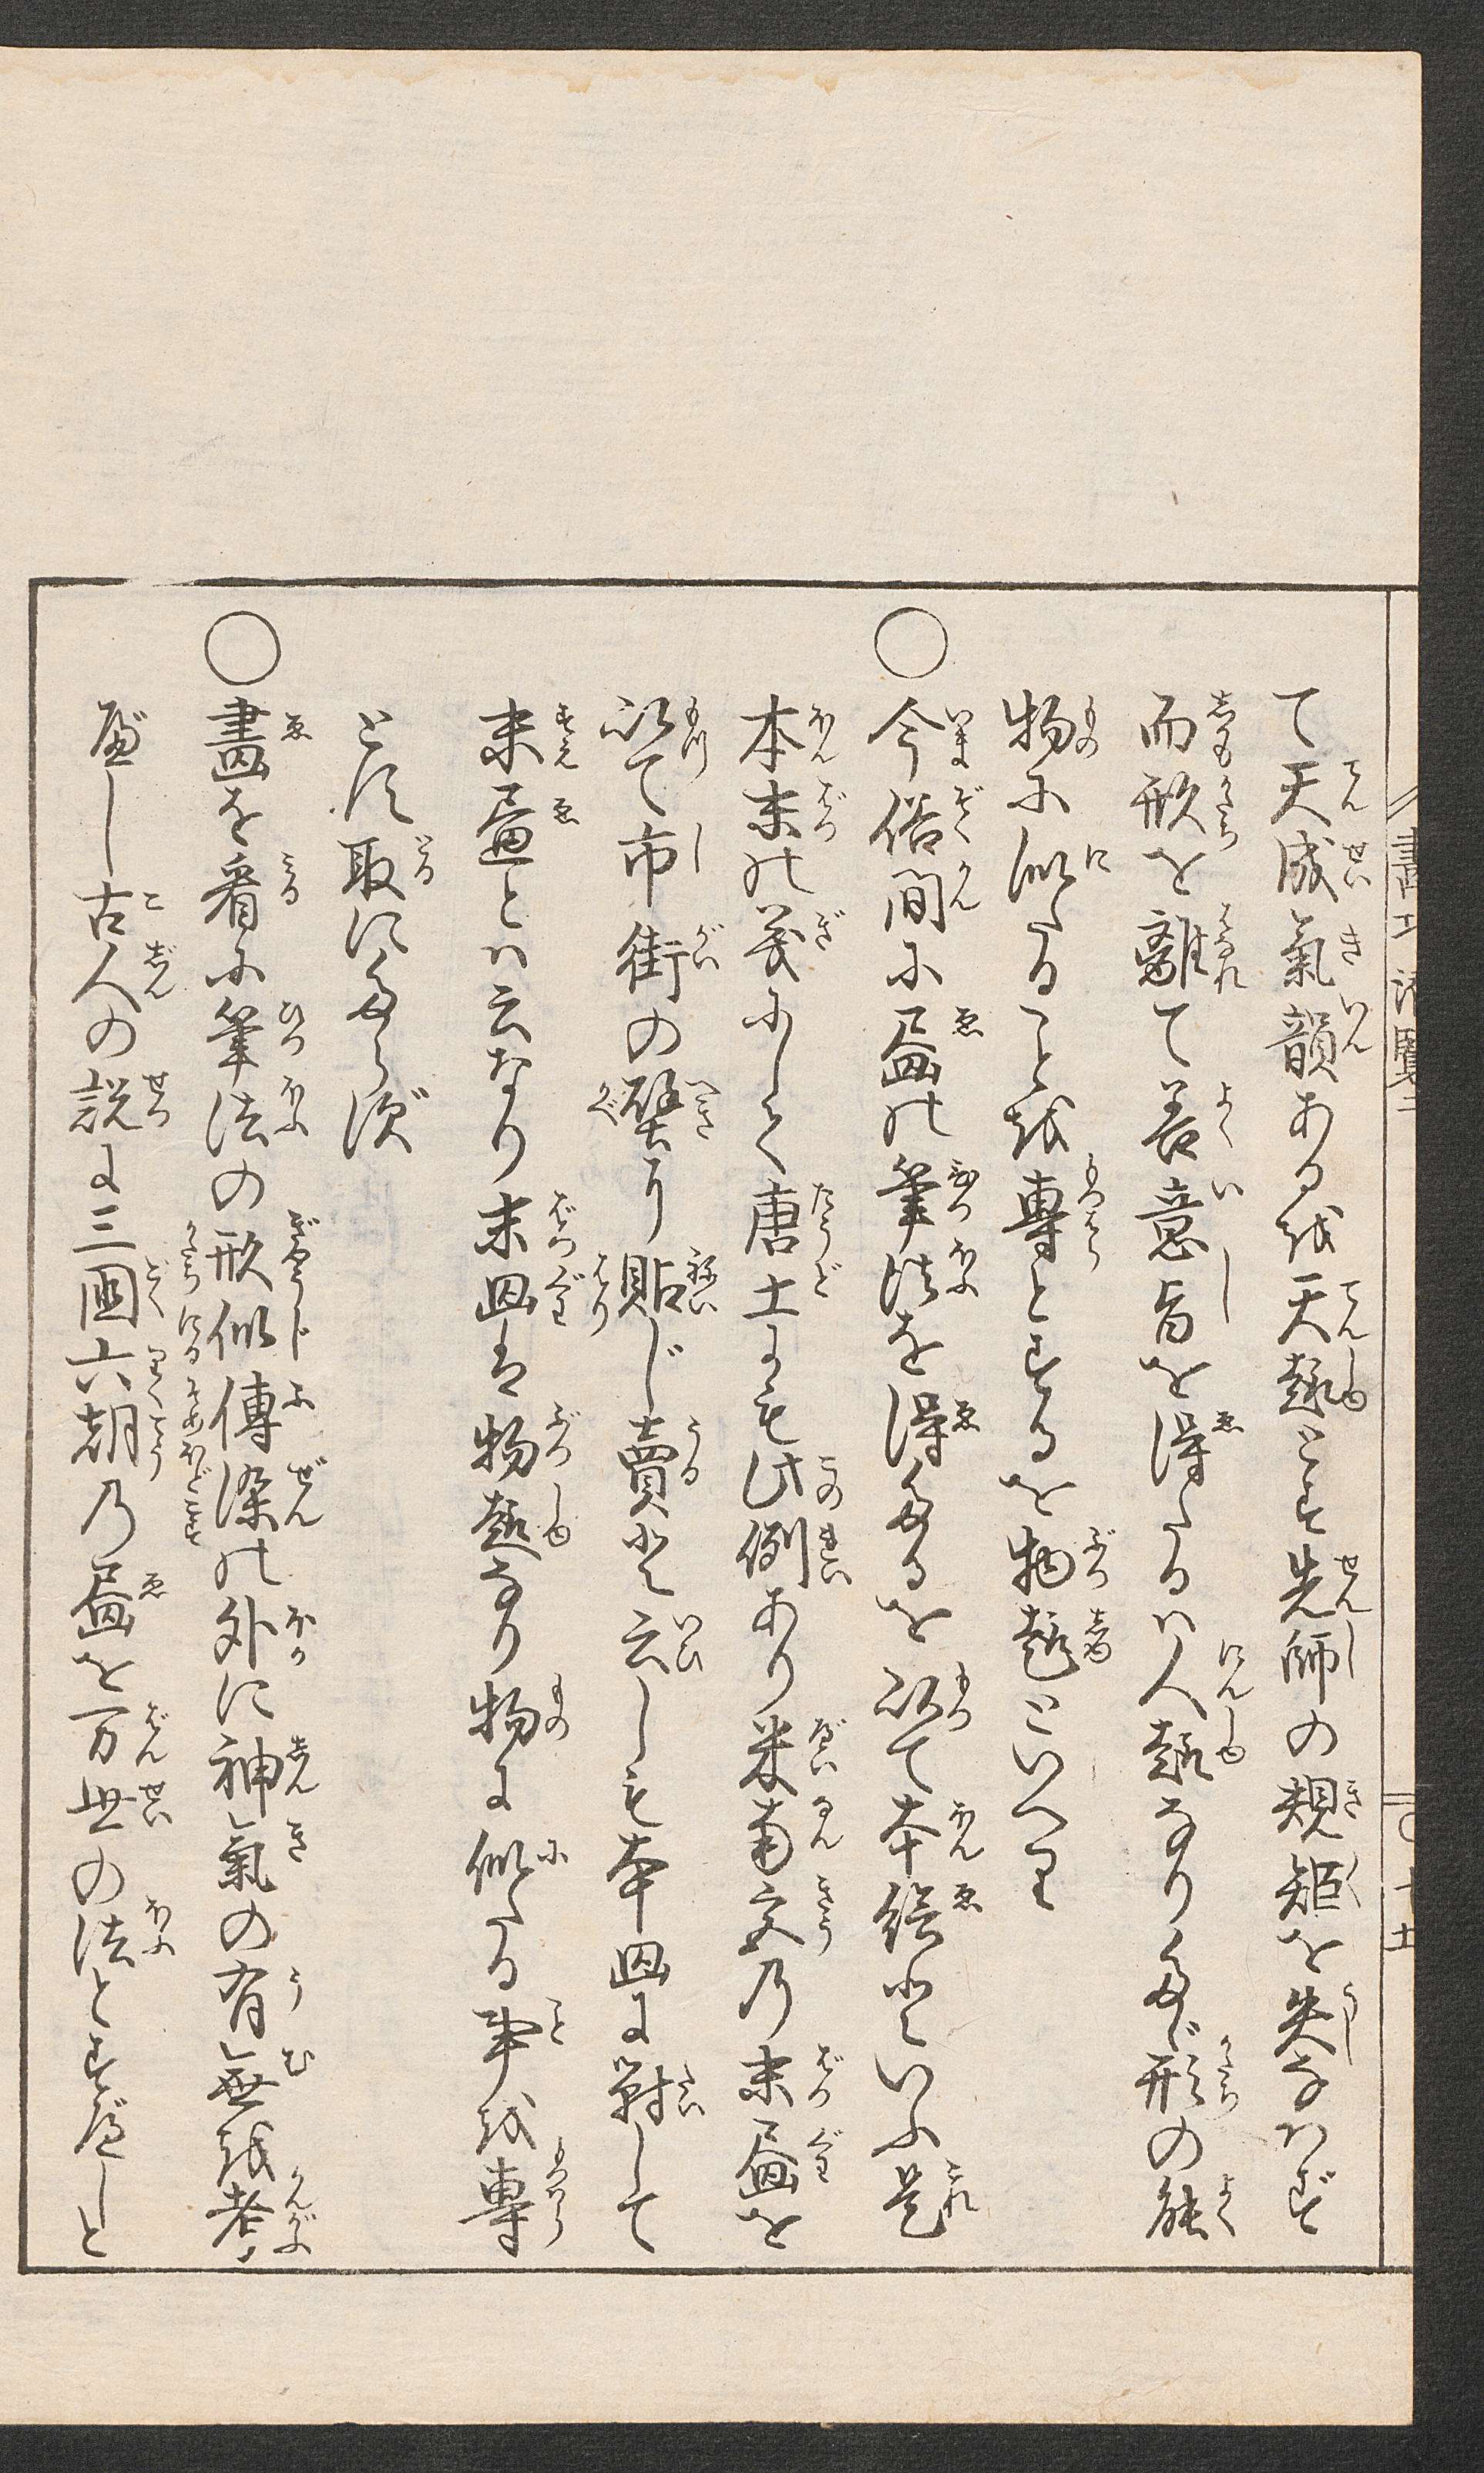 て天成氣韻ある越天趣とす先師の規矩を失なハず
而形を離て善意旨を得たるハ人趣なりたゞ形の能
物に似たること越專とするを物趣といへり
○今俗間に畫の筆法を得たるを以て本絵といふ是
本末の義にして唐土にも此例あり米南宮乃末畫を
以て市街の壁に貼じ賣と云しも本畫に對して
末畫とハ云なり末畫は物趣なり物に似たる事越專
とす取にたらず
○畫を看に筆法の形似傳染の外に神氣の有無越考
べし古人の説に三國六朝乃畫を万世の法とすべしと